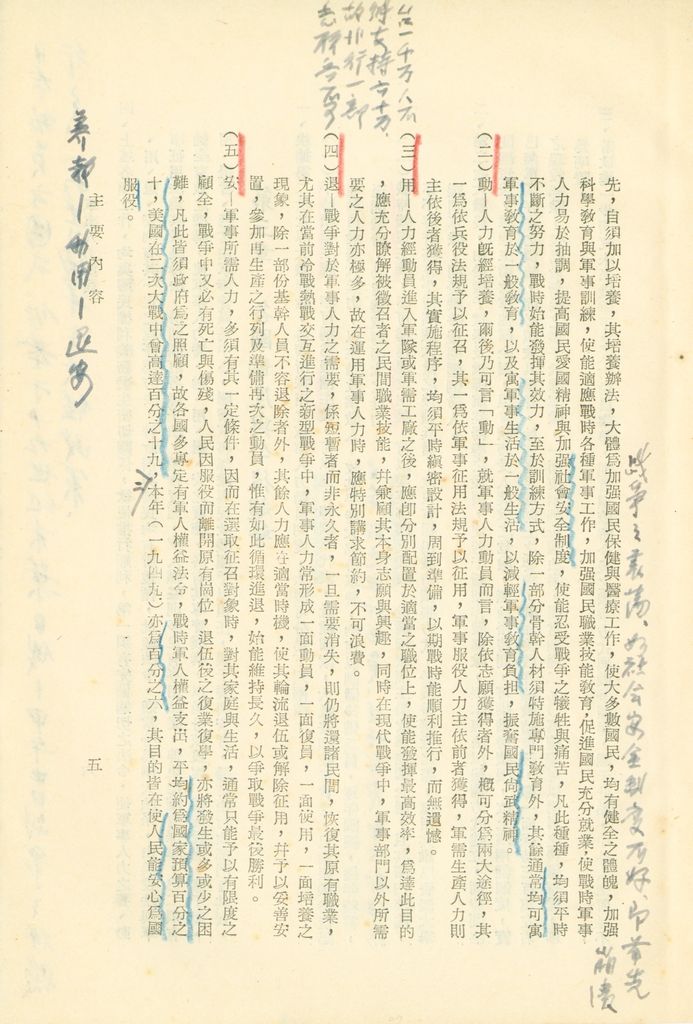 先，自須加以培養，其培養辦法，大體爲加强國民保健與醫療工作，使大多數國民，均有健全之體魄，加强
科學教育與軍事訓練，使能適應戰時各種軍事工作，加强國民職業技能敎育，促進國民充分就業，使戰時軍事
人力易於抽調，提高國民愛國精神與加强社會安全制度，使能忍受戰爭之犧牲與痛苦，凡此種種，均須平時
不斷之努力，戰時始能發揮其效力，至於訓練方式，除一部分骨幹人材須特施專門敎育外，其餘通常均可寓
軍事敎育於一般敎育，以及寓軍事生活於一般生活，以減輕軍事敎育負担，振奮國民尙武精神。
（二）動—人力旣經培養，爾後乃可言「動」，就軍事人力動員而言，除依志願獲得者外，槪可分爲兩大途徑，其
一爲依兵役法規予以征召，其一爲依軍事征用法規予以征用，軍事服役人力主依前者獲得，軍需生產人力則
主依後者獲得，其實施程序，均須平時縝密設計，周到準備，以期戰時能順利推行，而無遺憾。
（三）用—人力經動員進入軍隊或軍需工廠之後，應卽分別配置於適當之職位上，使能發揮最高效率，爲達此目的
，應充分瞭解被徵召者之民間職業技能，幷兼顧其本身志願與興趣，同時在現代戰爭中，軍事部門以外所需
要之人力亦極多，故在運用軍事人力時，應特別講求節約，不可浪費。
（四）退—戰爭對於軍事人力之需要，係短暫者而非永久者，一旦需要消失，則仍將還諸民間，恢復其原有職業，
尤其在當前冷戰熱戰交互進行之新型戰爭中，軍事人力常形成一面動員，一面復員，一面使用，一面培養之
現象，除一部份基幹人員不容退除者外，其餘人力應在適當時機，使其輪流退伍或解除征用，幷予以妥善安
置，參加再生產之行列及準備再次之動員，惟有如此循環進退，始能維持長久，以爭取戰爭最後勝利。
（五）安—軍事所需人力，多須有其一定條件，因而在選取征召對象時，對其家庭與生活，通常只能予以有限度之
顧全，戰爭中又必有死亡與傷殘，人民因服役而離開原有崗位，退伍後之復業復學，亦將發生或多或少之困
難，凡此皆須政府爲之照顧，故各國多專定有軍人權益法令，戰時軍人權益支出，平均約爲國家預算百分之
十，美國在二次大戰中會高達百分之十九，本年（一九四九）亦爲百分之六，其目的皆在使人民能安心爲國
服役。
主要內容
五
戰爭之義務，如社會安全制度不好，卽首先
崩潰